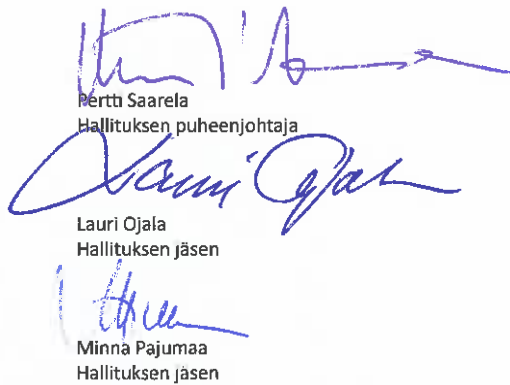 Pertti Saarela
Hallituksen puheenjohtaja
Lauri Ojala
Lauri Ojala
Hallituksen jäsen
Minna Pajumaa
Hallituksen jäsen